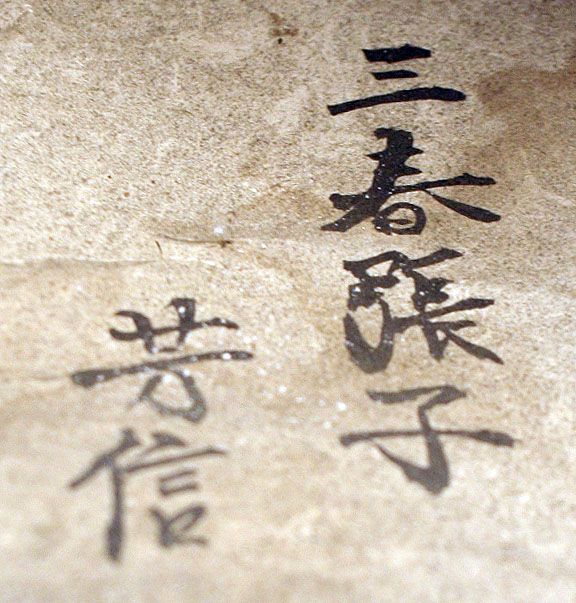 三春張子
芳信